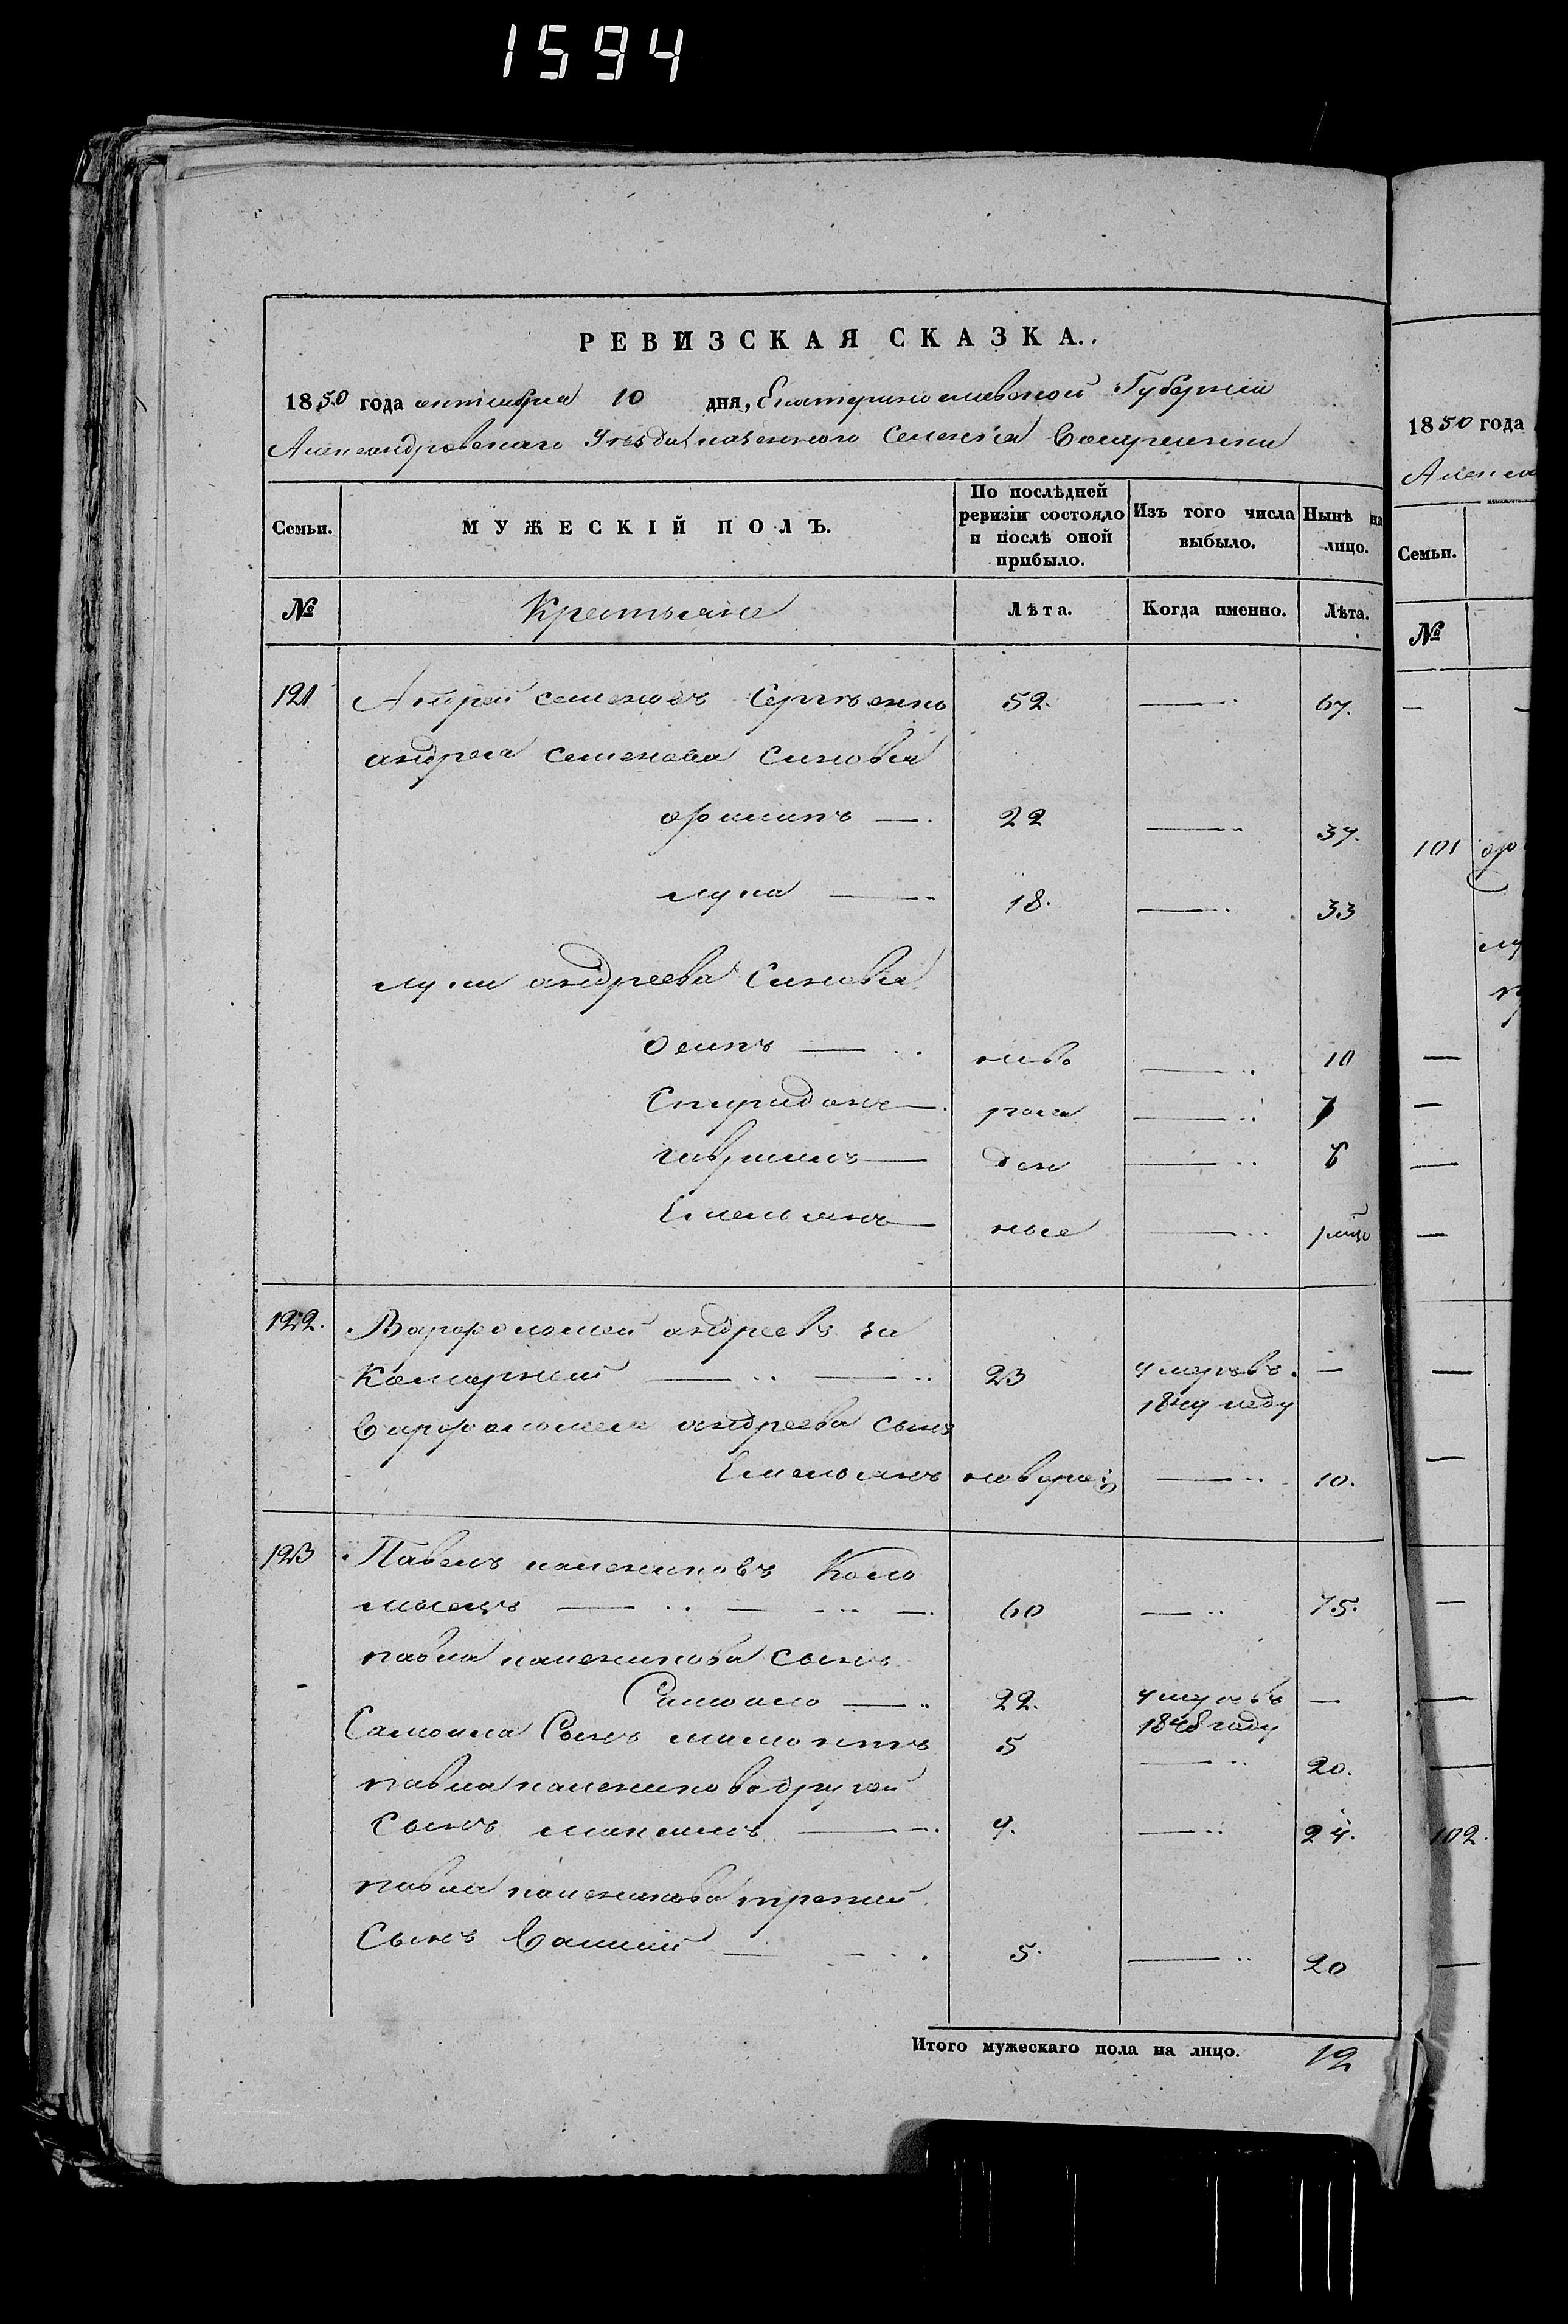 1594
РЕВИЗСКАЯ СКАЗКА..
1850 года октября 10 дня, Екатеринославской Губерніи
Александровскаго Уезда казенного Селенія
Семьи. МУЖЕСКІЙ ПОЛЪ. По послѣдней ревизіи состояло и послѣ оной прибыло. Изъ того числа выбыло. Нынѣ на лицо.
№ Крестьяне Лѣта. Когда именно. Лѣта.
121 Андрей семеновъ Сергѣенко 52. — 67.
андрея семенова Синовья
филипъ — 22 — 37.
лука — 18. — 33
луки андреева Синовья
Осипъ — ново — 10
Спиридонъ — рож — 7
гаврiилъ — ден — 6
Емельянъ — ные —
122. Варфоломей андреевъ за
Комирний — 23 умеръ въ —
1849 году
Варфоломея андреева сынъ
Емельянъ новорож — 10.
123 Павелъ калениковъ Коло
миецъ — 60 — 75.
павла каленикова сынъ
Самойло — 22. умеръ въ —
1848 году
Самойла Сынъ 5 — 20.
павла каленикова другой
Сынъ максимъ — 9. — 24.
павла каленикова третий
Сынъ Василий — 5. — 20
Итого мужескаго пола на лицо. 12
1850 года
Алекса
Семьи.
№
101
лу
102.